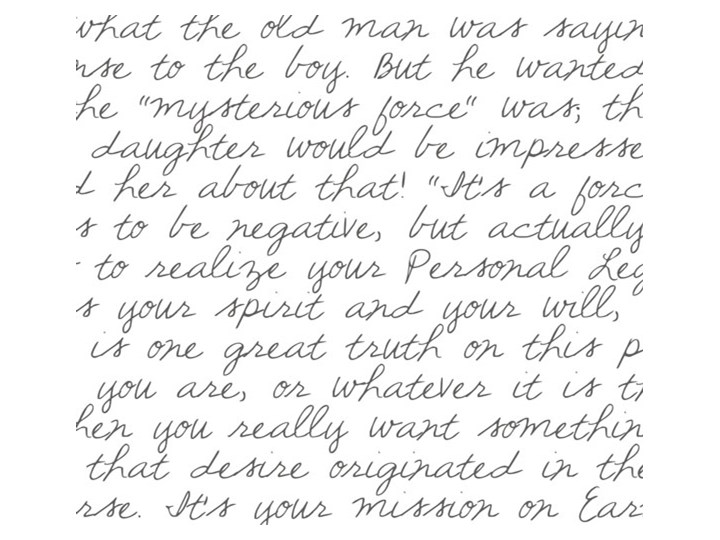 what the old man was sayin
nse to the boy. But he wanted
he "mysterious force" was; th
daughter would be impresse
d her about that! "It's a forc
s to be negative, but actually
to realize your Personal Leg
s your spirit and your will,
is one great truth on this p
you are, or whatever it is t
hen you really want somethin
that desire originated in the
rse. It's your mission on Ear